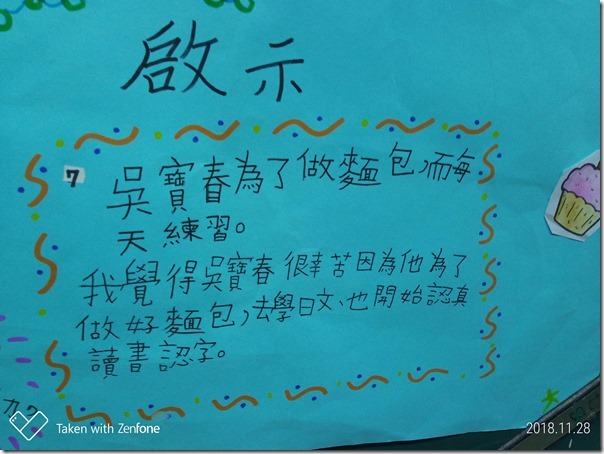 啟示
7
吳寶春為了做麵包,而每
天練習。
我覺得吳寶春很辛苦因為他為了
做好麵包,去學日文、也開始認真
讀書認字。
Taken with Zenfone
2018.11.28